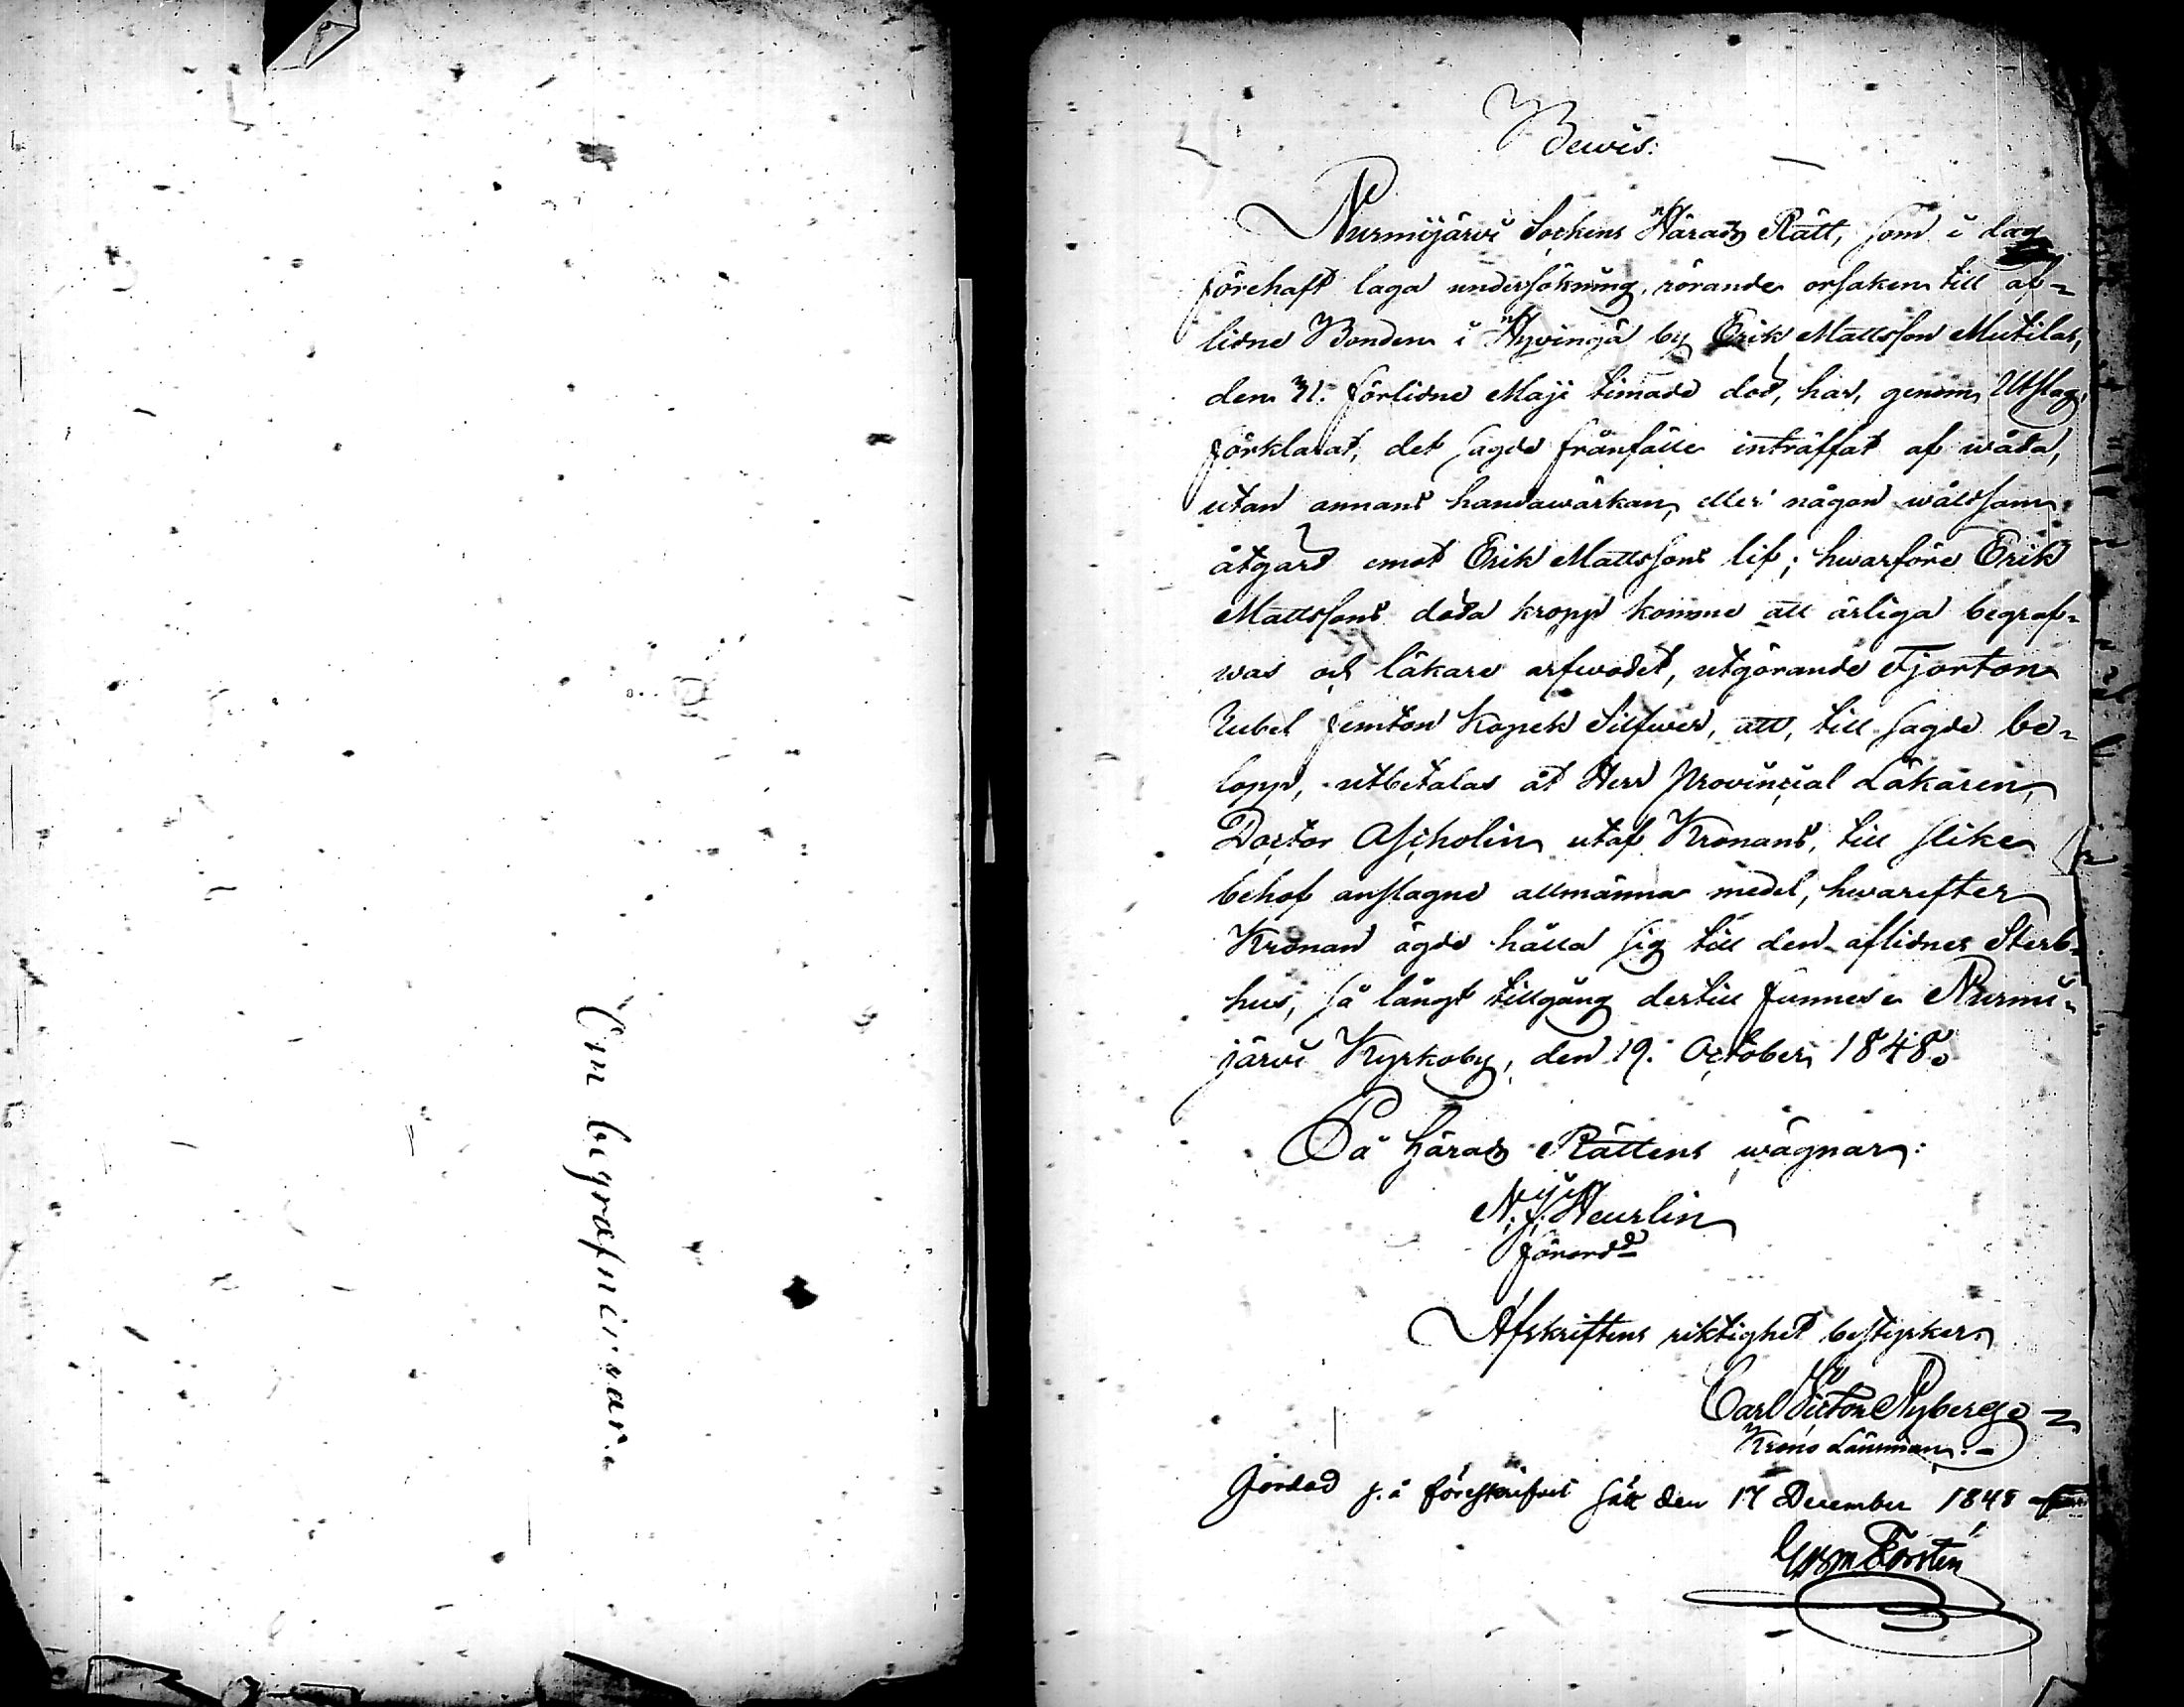 Om begrafningar.
Bewis:
Nurmijärvi Sockens Härads Rätt, som i dag
förehaft laga undersökning, rörande orsaken till af-
lidne Bonden i Hyvingä by Erik Mattsson Mutilas,
den 31. förlidne Maji timade död, har, genom Utslag,
förklarat, det sagde frånfälle inträffat af wåda,
utan annans handawärkan, eller någon wåldsam
åtgärd emot Erik Mattssons lif; hwarföre Erik
Mattssons döda kropp komme att ärliga begraf-
was och läkare arfwodet, utgörande Fjorton
Rubel femton Kopek Silfwer, att, till sagde be-
lopp, utbetalas åt Herr Provincial Läkaren,
Doctor Ascholin utaf Kronans, till slike
behof anslagne allmänna medel, hwarefter
Kronan ägde hålla sig till den aflidnes Sterb-
hus, så långt tillgång dertill funnes. Nurmi-
järvi Kyrkoby, den 19. October 1848.
På Härads Rättens wägnar:
N. J. Heurlin
förord:d
Afskriftens riktighet bestyrker
Carl Victor Nyberg
Krono Länsman.
Jordad på föreskrifvet sätt den 17 December 1848
Forstén